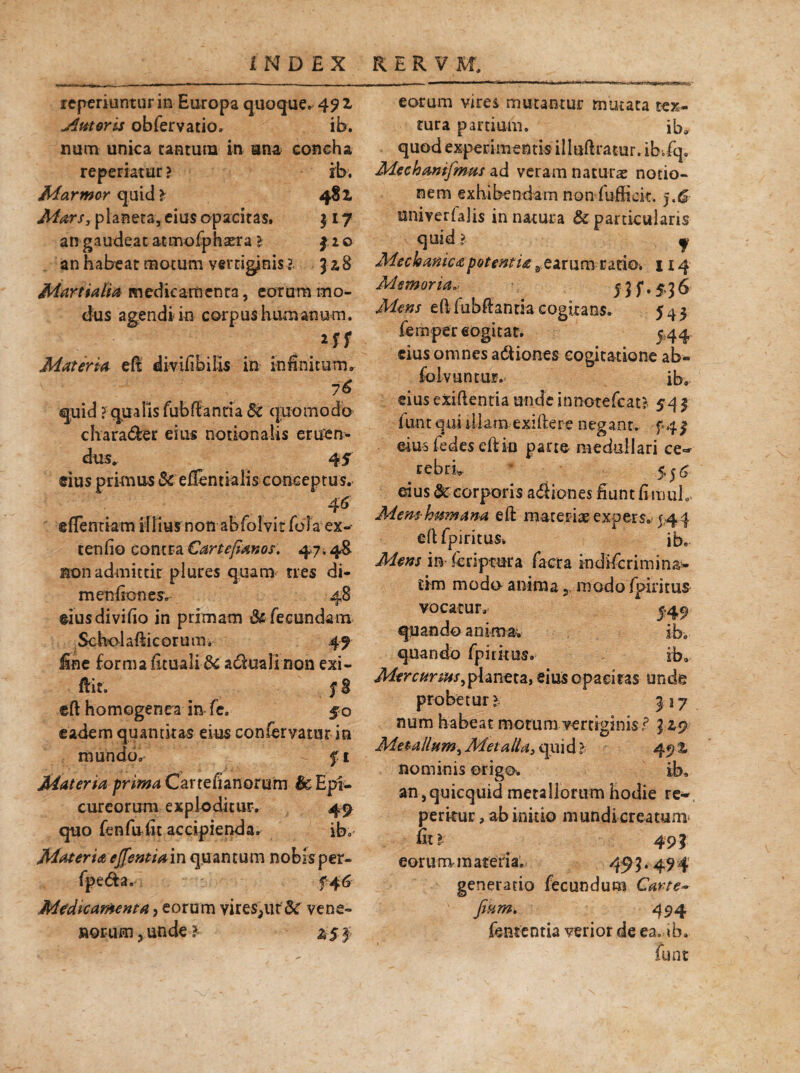 INDEX RERVM.
reperiuntur in Europa quoque. 492
Autoris obſervatio. ib.
num unica tantum in una concha
reperiatur? ib.
Marmor quid? 482
Mars, planeta, eius opacitas. 317
an gaudeat atmoſphæra? 320
an habeat motum vertiginis? 328
Martialia medicamenta, eorum mo-
dus agendi in corpus humanum.
255
Materia eſt diviſibilis in infinitum.
76
quid? qualis ſubſtantia & quomodo
character eius notionalis eruen-
dus. 45
eius primus & eſſentialis conceptus.
46
eſſentiam illius non abſolvit ſola ex-
tenſio contra Carteſianos. 47. 48
non admittit plures quam tres di-
menſiones. 48
eius diviſio in primam & ſecundam
Scholaſticorum. 49
ſine forma ſituali & actuali non exi-
ſtit. 58
eſt homogenea in ſe. 50
eadem quantitas eius conſervatur in
mundo. 51
Materia prima Carteſianorum & Epi-
cureorum exploditur. 49
quo ſenſu ſit accipienda. ib.
Materiæ eſſentia in quantum nobis per-
ſpecta. 546
Medicamenta, eorum vires, ut & vene-
norum, unde? 253
eorum vires mutantur mutata tex-
tura partium. ib.
quod experimentis illuſtratur. ib. ſq.
Mechaniſmus ad veram naturæ notio-
nem exhibendam non ſufficit. 5. 6
univerſalis in natura & particularis
quid?
Mechanicæ potentiæ, earum ratio. 114
Memoria. 535. 536
Mens eſt ſubſtantia cogitans. 543
ſemper cogitat. 544
eius omnes actiones cogitatione ab-
ſolvuntur. ib.
eius exiſtentia unde innoteſcat? 543
ſunt qui illam exiſtere negant. 543
eius ſedes eſt in parte medullari ce-
rebri. 556
eius & corporis actiones fiunt ſimul.
Mens humana eſt materiæ expers. 544
eſt ſpiritus. ib.
Mens in ſcriptura ſacra indiſcrimina-
tim modo anima, modo ſpiritus
vocatur. 549
quando anima. ib.
quando ſpiritus. ib.
Mercurius, planeta, eius opacitas unde
probetur? 317
num habeat motum vertiginis? 329
Metallum, Metalla, quid? 492
nominis origo. ib.
an, quicquid metallorum hodie re-
peritur, ab initio mundi creatum
ſit? 493
eorum materia. 493. 494
generatio ſecundum Carte-
ſium. 494
ſententia verior de ea. ib.
ſunt